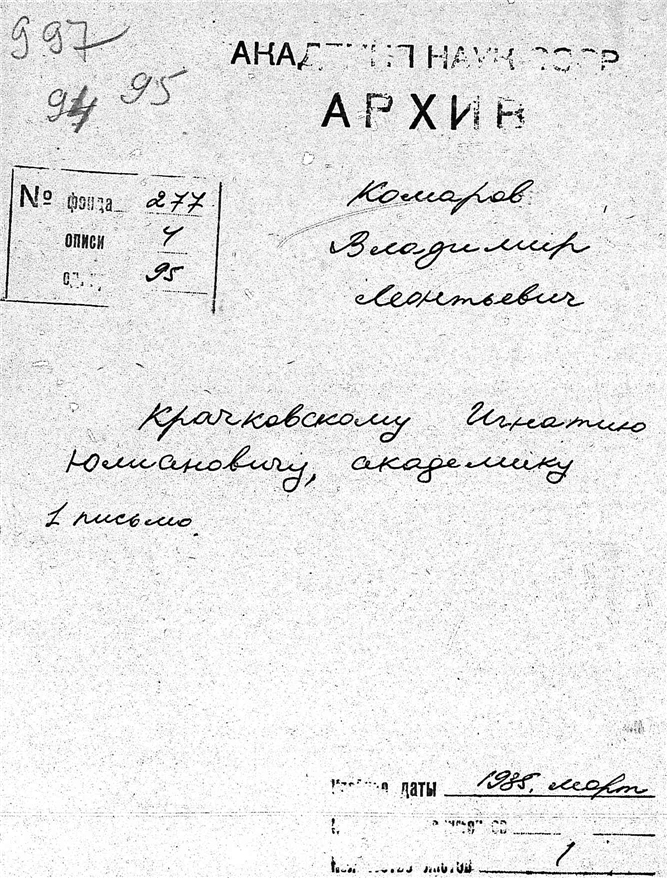 997
94 95
АКАДЕМИЯ НАУК СССР
АРХИВ
№ фонда 277
описи 4
95
Комаров
Владимир
Леонтьевич
Крачковскому Игнатию
Юлиановичу, академику
1 письмо.
даты 1935. март
листов 1